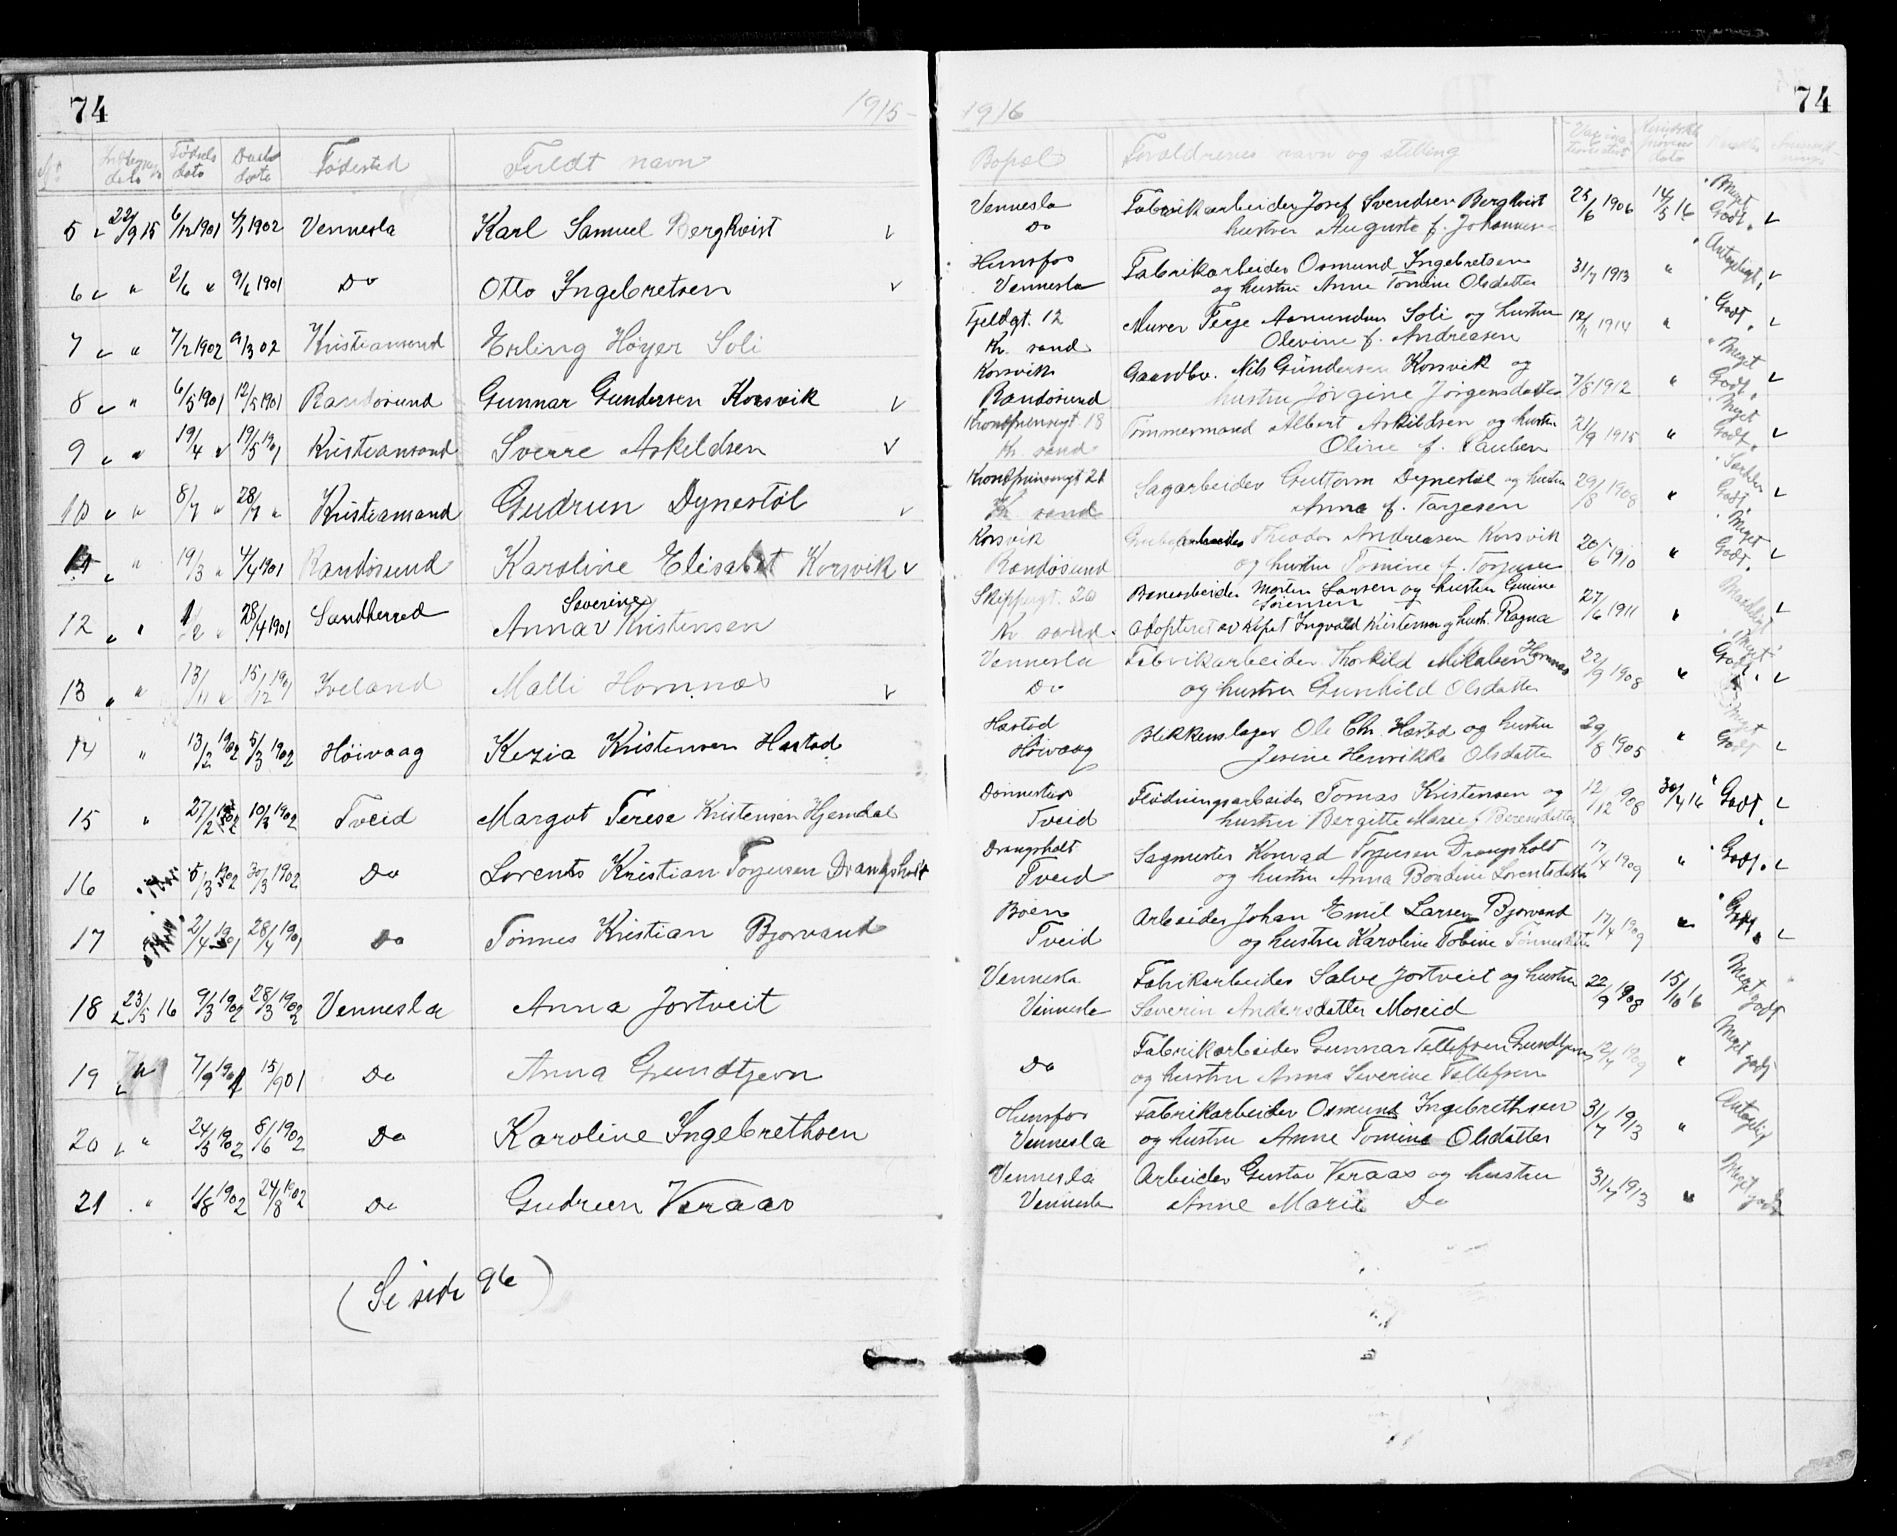 74 1915-
Fødsels dato Daabs dato Fødested Fuldt navn
5 22/9 15 6/12 1901 4/1 1902 Vennesla Karl Samuel Bergkvist
6 " 2/6 " 9/6 1901 Do Otto Ingebretsen
7 " 7/2 1902 9/3 02 Kristiansand Erling Høyer Soli
8 " 6/3 1901 12/5 1901 Randøsund Gunnar Gundersen Korsvik
9 " 19/4 " 19/5 1901 Kristiansand Sverre Askeldsen
10 " 8/7 " 28/7 " Kristiansand Gudrun Dynestøl
" 19/3 " 4/4 1901 Randøsund Karoline Elisabet Korsvik
12 " 28/4 1901 Sandherred Anna Severine Kristensen
13 " 13/11 " 15/12 1901 Iveland Malli Hornnes
14 " 13/2 1902 5/3 1902 Høivaag Kezia Kristensen Hastad
15 " 27/2 1902 10/3 1902 Tveid Margot Terese Kristensen Hjemdal
16 5/3 1902 30/3 1902 Do Lorents Kristian Torjusen Drangsholt
17 2/4 1901 28/4 1901 Do Tønnes Kristian Bjorvand
18 23/5 16 9/3 1902 28/3 1902 Vennesla Anna Jortveit
19 " 7/9 1901 15/9 01 Do Anna Grundtjern
20 " 24/3 1902 8/6 1902 Do Karoline Ingebrethsen
21 " 1/8 1902 24/8 1902 Do Gudrun Veraas
(Se side 96)
1916 74
Bopæl Forældrenes navn og stilling
Vennesla Fabrikarbeider Josef Svendsen Bergkvist 25/6 1906 14/5 16 Meget
Do hustru Auguste f. Johannes- Godt.
Hunsfos Fabrikarbeider Osmund Ingebretsen 31/7 1913 " Antageligt
Vennesla og hustru Anne Tomine Olsdatter
Fjeldgt. 12 Murer Terje Asmundsen Soli og hustru 12/11 1914 " Godt.
Kr. sand Olevine f. Andreasen
Korsvik Gaardbr. Nils Gundersen Korsvik og 7/8 1912 " Meget
Randøsund hustru Jørgine Jørgensdatter Godt.
Kronprinsensgt. 18 Tømmermand Albert Askildsen og hustru 21/9 1915 " Meget
Kr. sand Oline f. Paulsen Godt.
Kronprinsensgt 21 Sagarbeider Guttorm Dynestøl og hustru 29/8 1908 " Særdeles
Kr sand Anna f. Tarjesen Godt.
Korsvik Theodor Andreasen Korsvik 20/6 1910 " Meget
Randøsund og hustru Tomine f. Torjusen Godt.
Skippergt. 20 Banearbeider Morten Larsen og hustru Gemine Sørensen 27/6 1911 " Maadeligt
Kr sand. Adopteret av Ingvald Kristensen og hust. Ragna
Vennesla Fabrikarbeider Thorkild Mikalsen Hornnes 22/9 1908 " Meget
Do og hustru Gunhild Olsdatter Godt.
Hastad Blikkenslager Ole Chr. Hastad og hustru 29/8 1905 " Meget
Høivaag Jesine Henrikka Olsdatter Godt
Donnestad Flødningsarbeider Tomas Kristensen og 12/12 908 30/4 16 Godt.
Tveid hustru Bergitte Marie Berensdatter
Drangsholt Sagmester Konrad Torjusen Drangsholt 17/4 1909 " Godt.
Tveid og hustru Anna Bondine Lorentsdatter
Boen Arbeider Johan Emil Larsen Bjorvand 17/4 1909 " Godt.
Tveid og hustru Karoline Tobine Tønnesdatter
Vennesla Fabrikarbeider Salve Jortveit og hustru 22/9 1908 15/10 16 Meget godt
Vennesla Severin Andersdatter Moseid
Do Fabrikarbeider Gunnar Tellefsen Grundtjern 12/4 1909 " Meget godt
og hustru Anna Severine Tellefsen
Hunsfos Fabrikarbeider Osmund Ingebrethsen 31/7 1913 " Antagelig
Vennesla og hustru Anne Tomine Olsdatter
Vennesla Arbeider Gustav Veraas og hustru 31/7 1913 " Meget godt
Vennesla Anne Marie Do